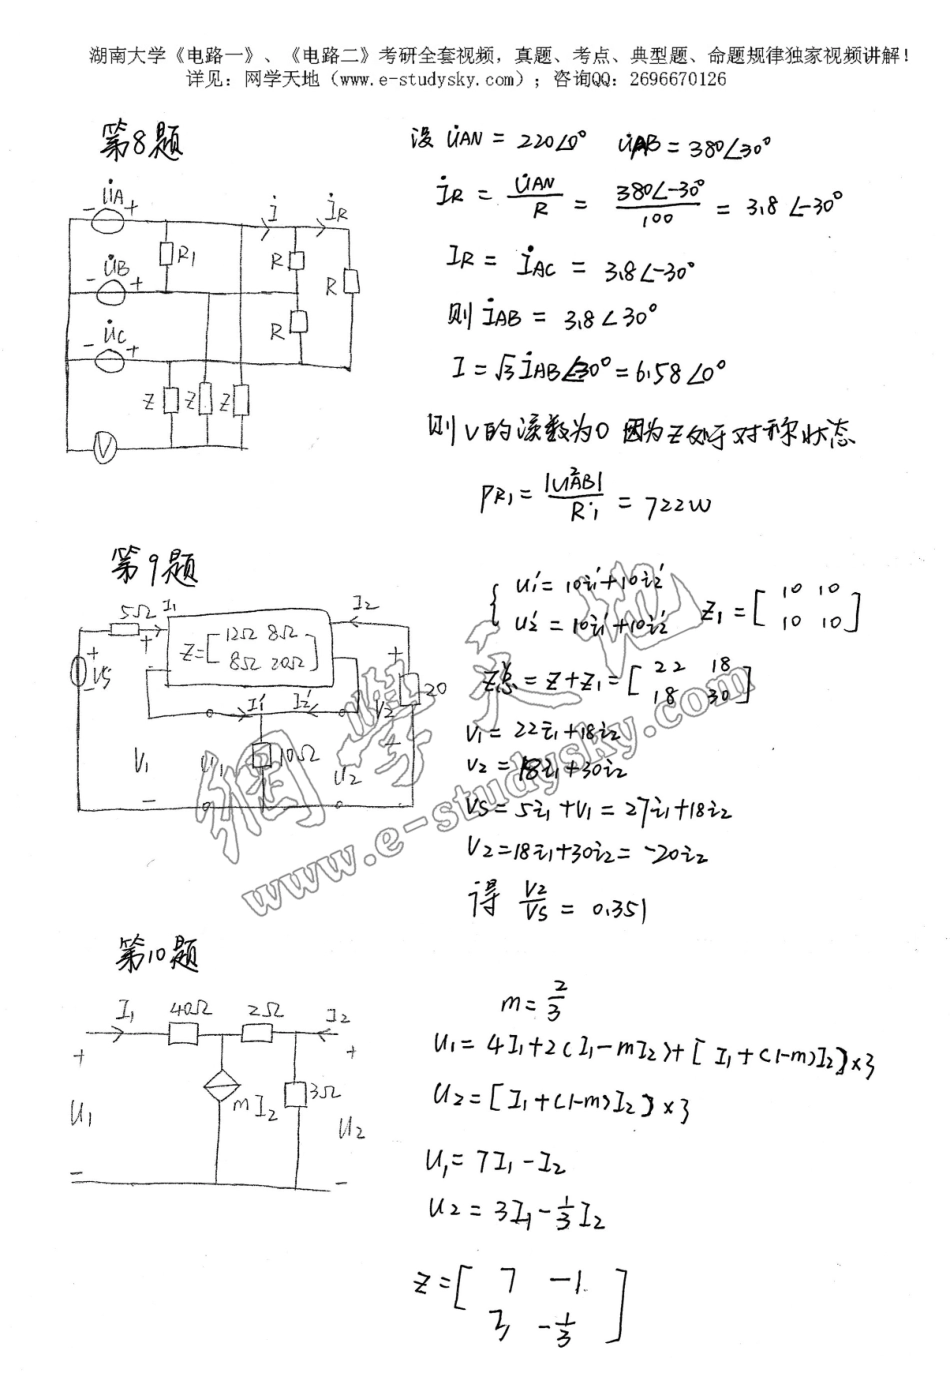 湖南大学《电路一》、《电路二》考研全套视频，真题、考点、典型题、命题规律独家视频讲解！
详见：网学天地（www.e-studysky.com）；咨询QQ：2696670126
第8题
U̇A
- +
U̇B
- +
U̇C
- +
R1
İ
İR
R
R
R
Z Z Z
V
设 U̇AN = 220∠0° U̇AB = 380∠30°
İR = U̇AN/R = 380∠-30°/100 = 3.8∠-30°
IR = İAC = 3.8∠-30°
则 İAB = 3.8∠30°
I = √3 İAB∠-30° = 6.58∠0°
则V的读数为0 因为Z处于对称状态
PR1 = |U²AB|/R1 = 722W
第9题
5Ω I1 I2
Z=[12Ω 8Ω
8Ω 20Ω]
+ VS -
I1' I2'
10Ω
20
V1 U1' U2' V2
{ U1' = 10i1'+10i2'
U2' = 10i1'+10i2'
Z1 = [10 10
10 10]
Z总 = Z+Z1 = [22 18
18 30]
V1 = 22i1+18i2
V2 = 18i1+30i2
VS = 5i1+V1 = 27i1+18i2
V2 = 18i1+30i2 = -20i2
得 V2/VS = 0.351
网学天地
www.e-studysky.com
第10题
I1 40Ω 2Ω I2
+ +
U1 mI2 3Ω U2
- -
m = 2/3
U1 = 4I1+2(I1-mI2)+[I1+(1-m)I2]×3
U2 = [I1+(1-m)I2]×3
U1 = 7I1-I2
U2 = 3I1-1/3I2
Z = [7 -1
3 -1/3]